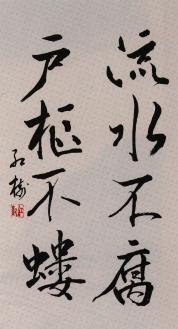 流水不腐
户枢不蝼